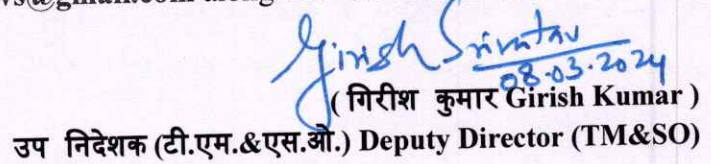 vs@gmail.com along
Girish Srivastav
08.03.2024
( गिरीश कुमार Girish Kumar )
उप निदेशक (टी.एम.&एस.ओ.) Deputy Director (TM&SO)